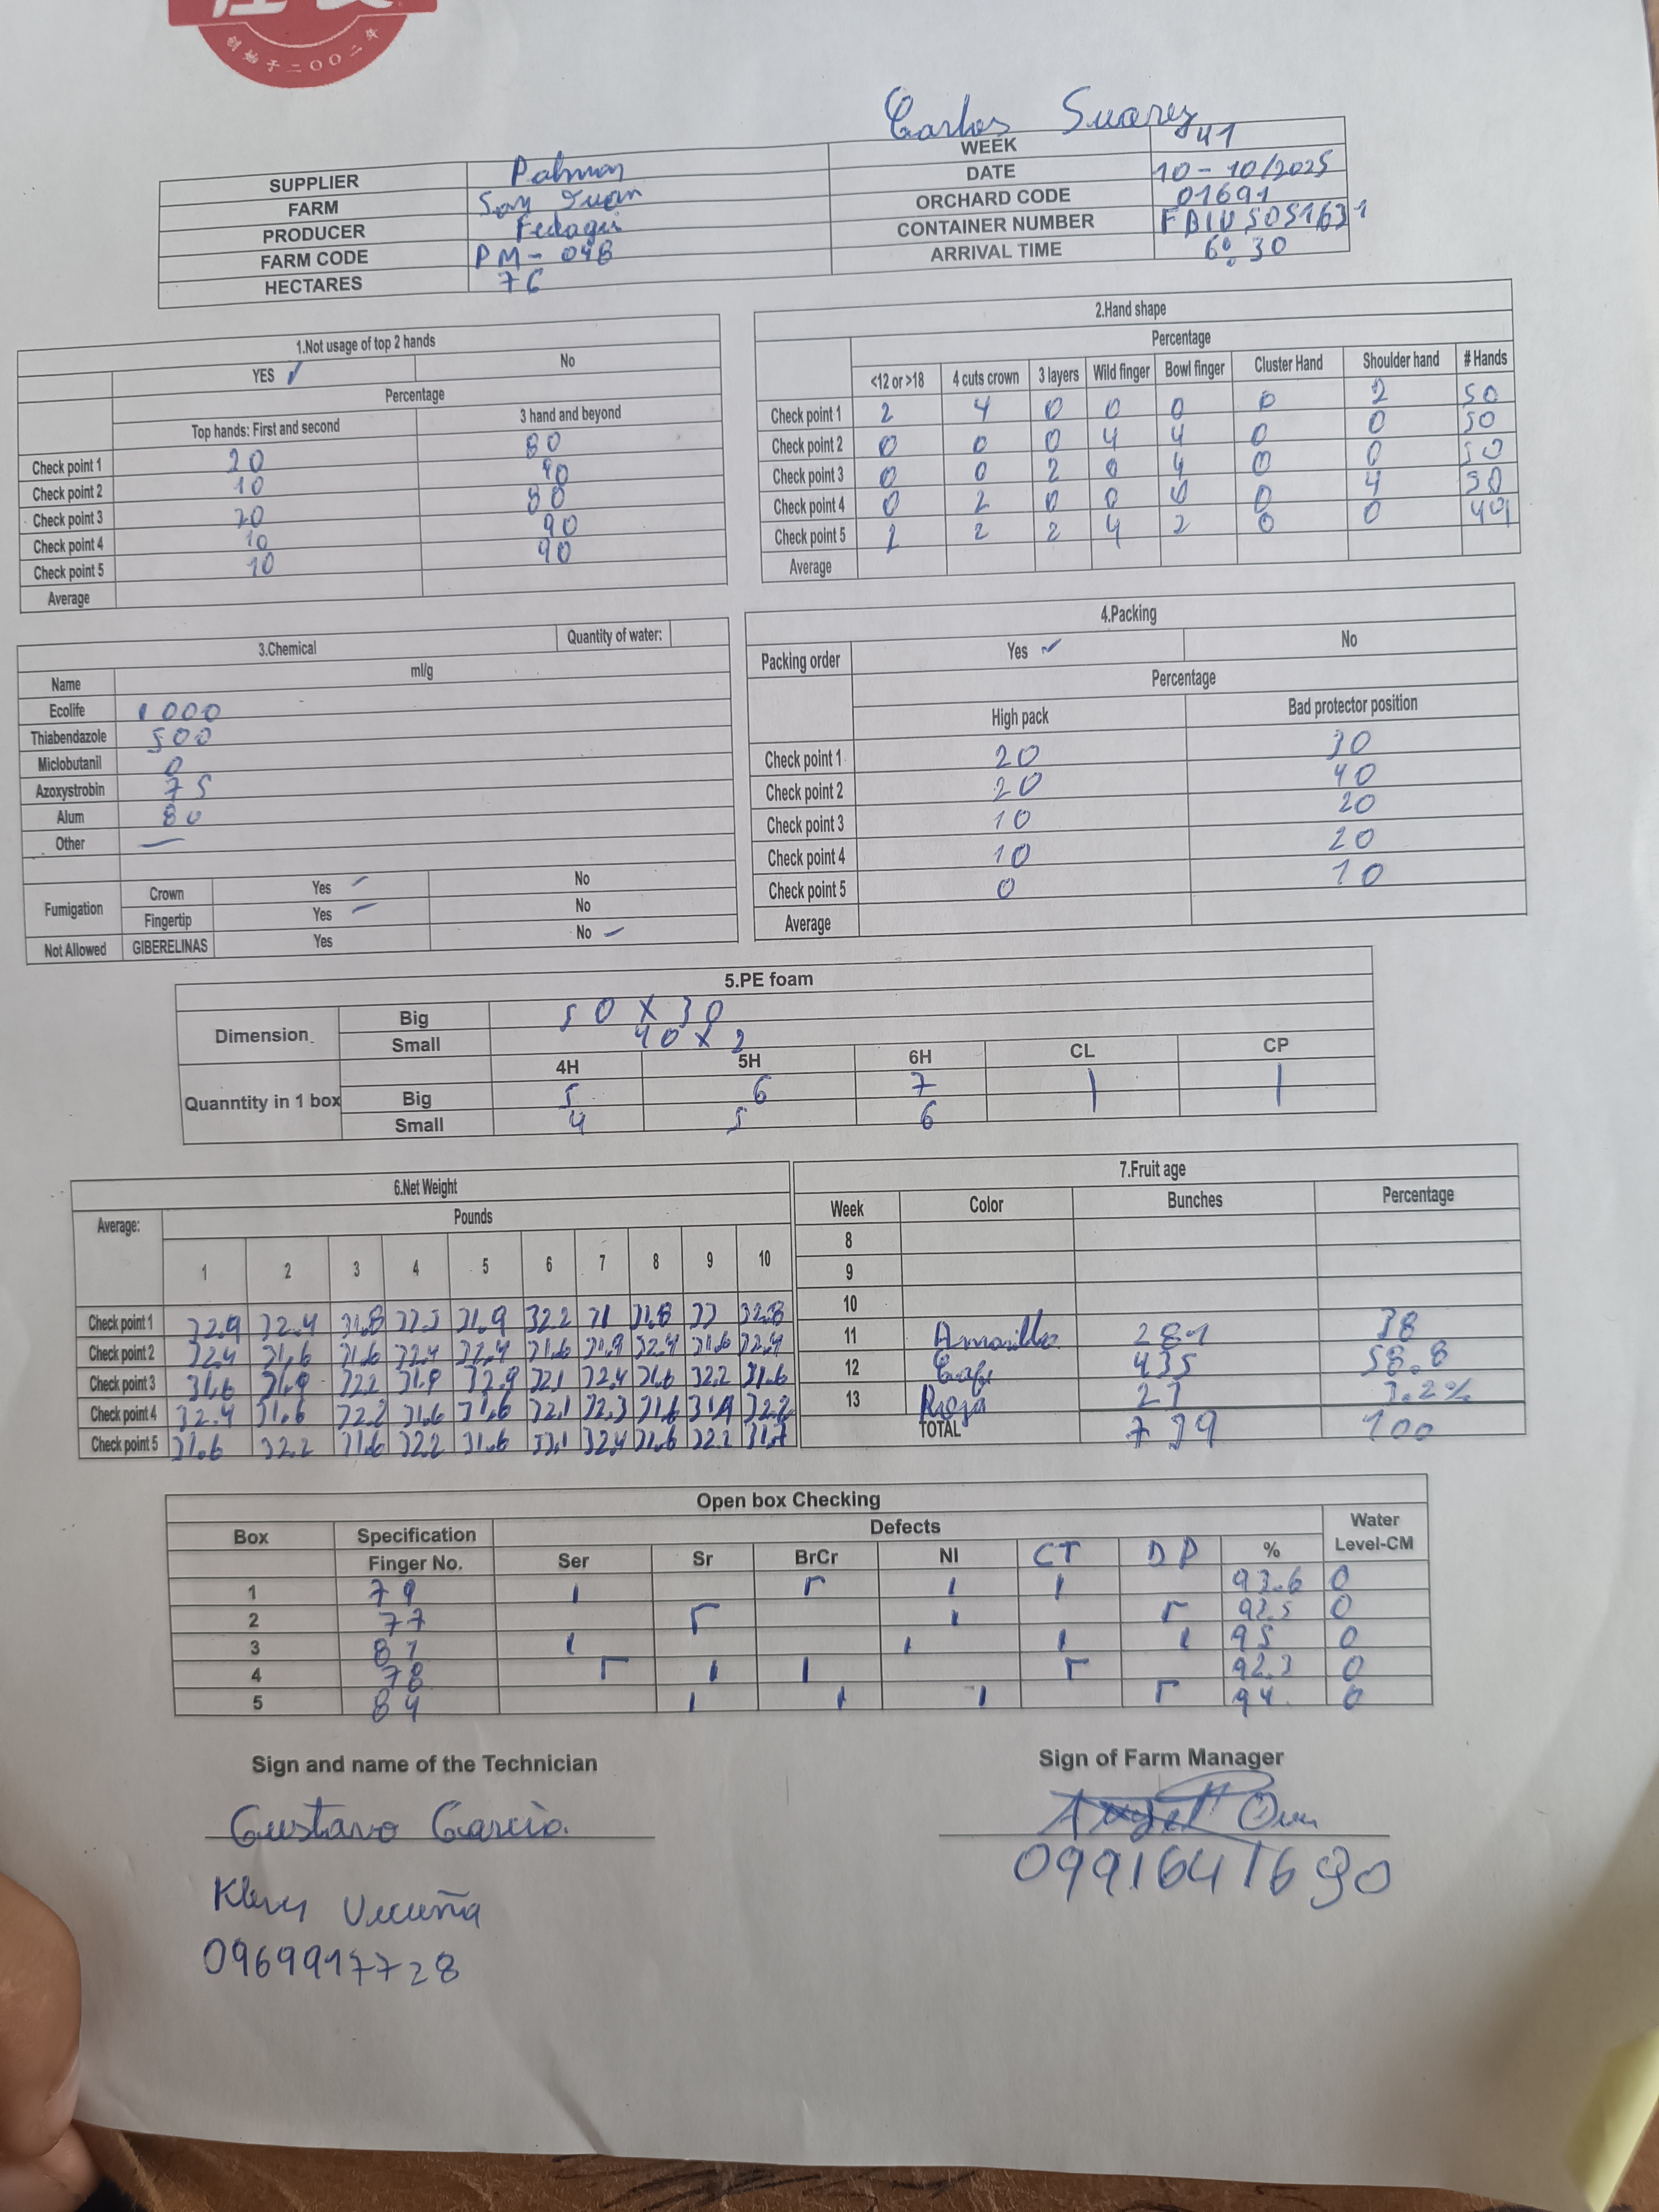 创始于二〇〇二年
Carlos Suarez
SUPPLIER Palmar WEEK 41
FARM San Juan DATE 10-10/2025
PRODUCER ORCHARD CODE 01691
FARM CODE PM-04B CONTAINER NUMBER FBIU5051631
HECTARES 76 ARRIVAL TIME 6:30
1.Not usage of top 2 hands
YES ✓ No
Percentage
Top hands: First and second 3 hand and beyond
Check point 1 20 80
Check point 2 10 90
Check point 3 20 80
Check point 4 10 90
Check point 5 10 90
Average
2.Hand shape
Percentage
<12 or >18 4 cuts crown 3 layers Wild finger Bowl finger Cluster Hand Shoulder hand # Hands
Check point 1 2 4 0 0 0 0 2 50
Check point 2 0 0 0 4 4 0 0 50
Check point 3 0 0 2 0 4 0 0 50
Check point 4 0 2 0 0 0 4 50
Check point 5 2 2 4 2 0 0 49
Average
3.Chemical Quantity of water:
Name ml/g
Ecolife 1000
Thiabendazole 500
Miclobutanil 0
Azoxystrobin 75
Alum 80
Other —
Fumigation Crown Yes ✓ No
Fingertip Yes ✓ No
Not Allowed GIBERELINAS Yes No ✓
4.Packing
Packing order Yes ✓ No
Percentage
High pack Bad protector position
Check point 1 20 30
Check point 2 20 40
Check point 3 10 20
Check point 4 10 20
Check point 5 0 10
Average
5.PE foam
Dimension Big 50 X 30
Small 40 x 2
4H 5H 6H CL CP
Quanntity in 1 box Big 5 6 7
Small 4 5 6
6.Net Weight
Average: Pounds
1 2 3 4 5 6 7 8 9 10
Check point 1 32.9 32.4 31.8 32.3 31.9 32.2 31 31.8 33 32.8
Check point 2 32.4 31.6 31.6 32.4 32.4 31.6 31.9 32.4 31.6 32.4
Check point 3 31.6 31.9 32.2 31.9 32.9 32.1 32.4 31.6 32.2 31.6
Check point 4 32.4 31.6 32.2 31.6 31.6 32.1 32.3 31.6 31.9 32.2
Check point 5 31.6 32.2 31.6 32.2 31.6 32.4 31.6 32.2 31.7
7.Fruit age
Week Color Bunches Percentage
8
9
10
11 Amarillo 281 38
12 Cafe 435 58.8
13 Roja 23 3.2%
TOTAL 739 100
Open box Checking
Box Specification Defects Water
Finger No. Ser Sr BrCr NI CT DP % Level-CM
1 79 93.6 0
2 77 92.5 0
3 81 95 0
4 78 92.3 0
5 84 94 0
Sign and name of the Technician Sign of Farm Manager
Gustavo Garcia. Angel
0991641690
Vicuña
0969917728